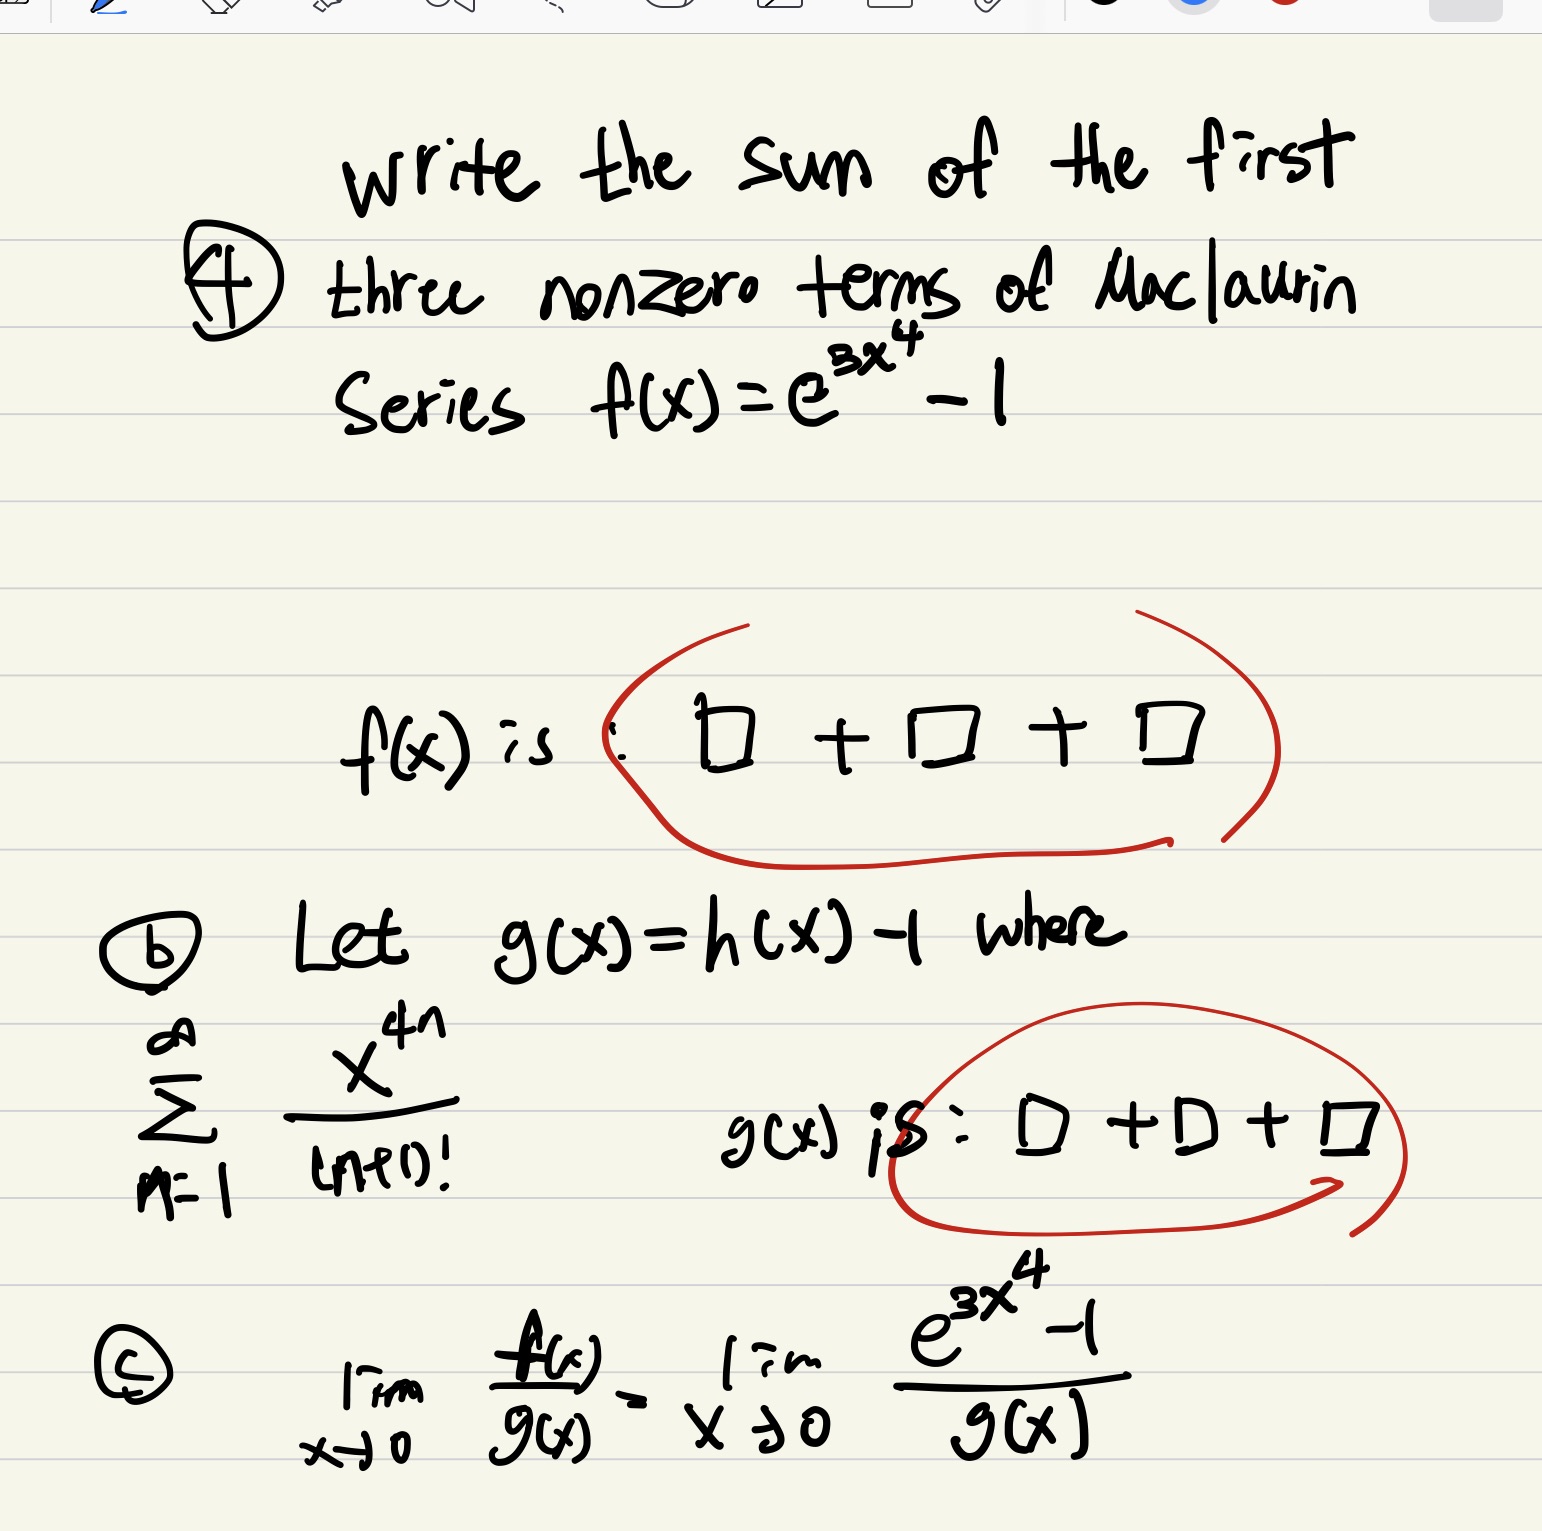 write the sum of the first
④ three nonzero terms of Maclaurin
Series f(x) = e^{3x^4} - 1
f(x) is : □ + □ + □
ⓑ Let g(x) = h(x) - 1 where
∞
Σ x^{4n} / (n+1)!
n=1
g(x) is : □ + □ + □
ⓒ lim x→0 f(x)/g(x) = lim x→0 (e^{3x^4} - 1)/g(x)